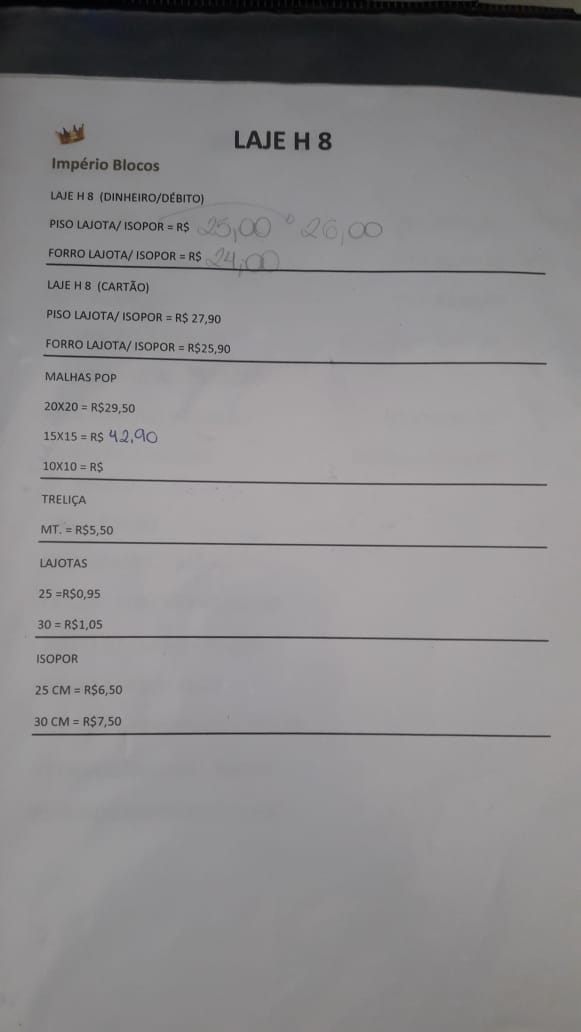 LAJE H 8
Império Blocos
LAJE H 8 (DINHEIRO/DÉBITO)
PISO LAJOTA/ ISOPOR = R$ 25,00 26,00
FORRO LAJOTA/ ISOPOR = R$ 24,00
LAJE H 8 (CARTÃO)
PISO LAJOTA/ ISOPOR = R$ 27,90
FORRO LAJOTA/ ISOPOR = R$25,90
MALHAS POP
20X20 = R$29,50
15X15 = R$ 42,90
10X10 = R$
TRELIÇA
MT. = R$5,50
LAJOTAS
25 =R$0,95
30 = R$1,05
ISOPOR
25 CM = R$6,50
30 CM = R$7,50